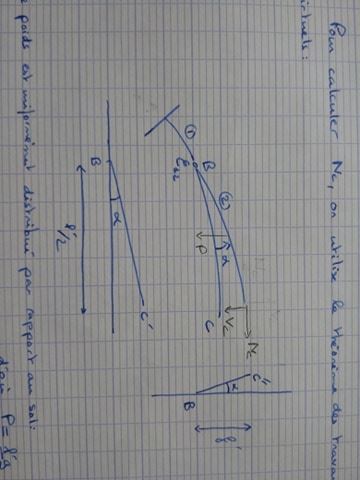 Pour calculer Nc, on utilise le théorème des travau
irtuels :
①
B
E₁₂
②
α
P
C
Vc
Nc
B
α
C'
l'/2
C''
α
B
f'
e poids est uniformément distribué par rapport au sol :
d'où P =